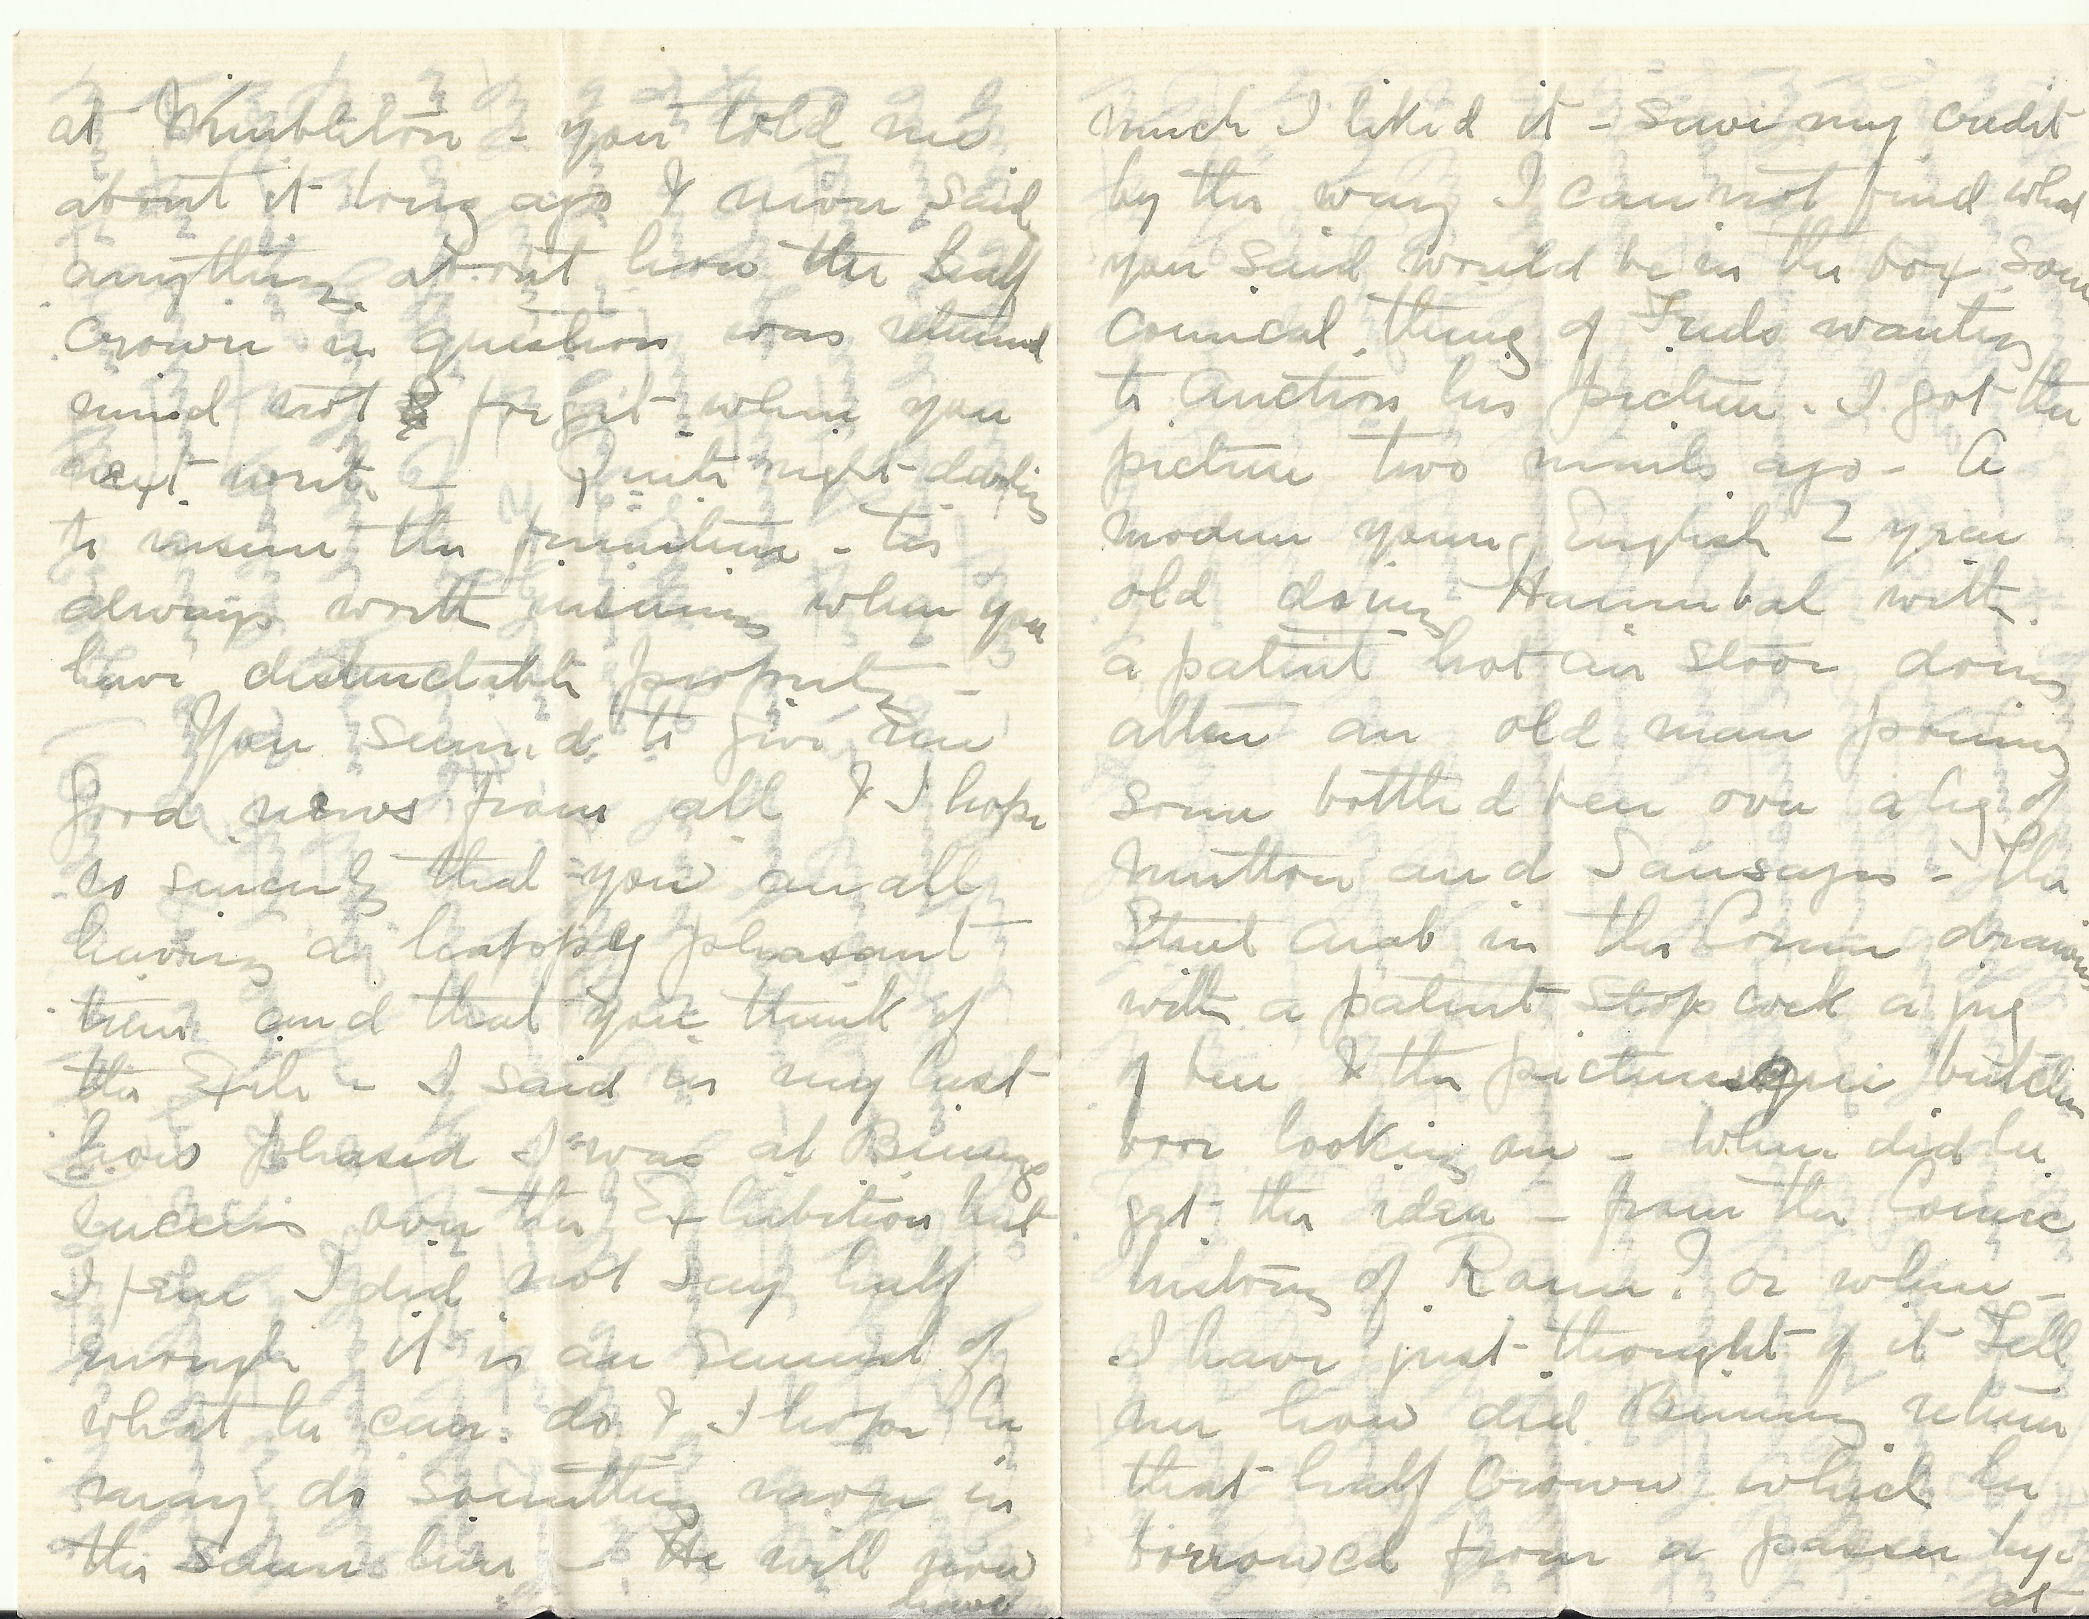 at Wimbleton - you told me
about it long ago & never said
anything about how the half
crown in question was returned
mind not forget when you
next write - Quite right darling
to insure the furniture - tis
always worth insuring when you
have destructable property -
You seemed to give me
good news from all & I hope
so sincerely that you are all
having a happy pleasant
time and that you think of
the Exile - I said in my last
how pleased I was at Binnys
success over the Exhibition but
I fear I did not say half
enough it is an earnest of
what he can do & I hope he
may do something more in
the same line - He will now
have
much I liked it - Save my credit
by the way I can not find what
you said would be in the box some
comical thing of Freds wanting
to auction his picture. I got the
picture two mails ago - A
modern young English 2 year
old doing Hannibal with
a patent hot air stove doing
an old man pouring
some bottled beer over a leg of
mutton and Sausages - the
Street Arab in the Corner drawing
with a patent stop cock a jug
of beer & the picturesque butcher
looking on - Where did he
get the idea - from the Comic
history of Rome? or where -
I have just thought of it Tell
me how did Binny return
that half Crown which he
borrowed from a passer bye
at